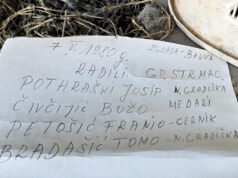 7. V. 1980 g.
RADILI: GR. STRMAC,
POTHRAŠKI JOSIP N. GRADIŠKA
ČIVČIJIĆ BOŽO MEDARI
PETOŠIĆ FRANJO - CERNIK
BRADAŠIĆ TOMO - N. GRADIŠKA